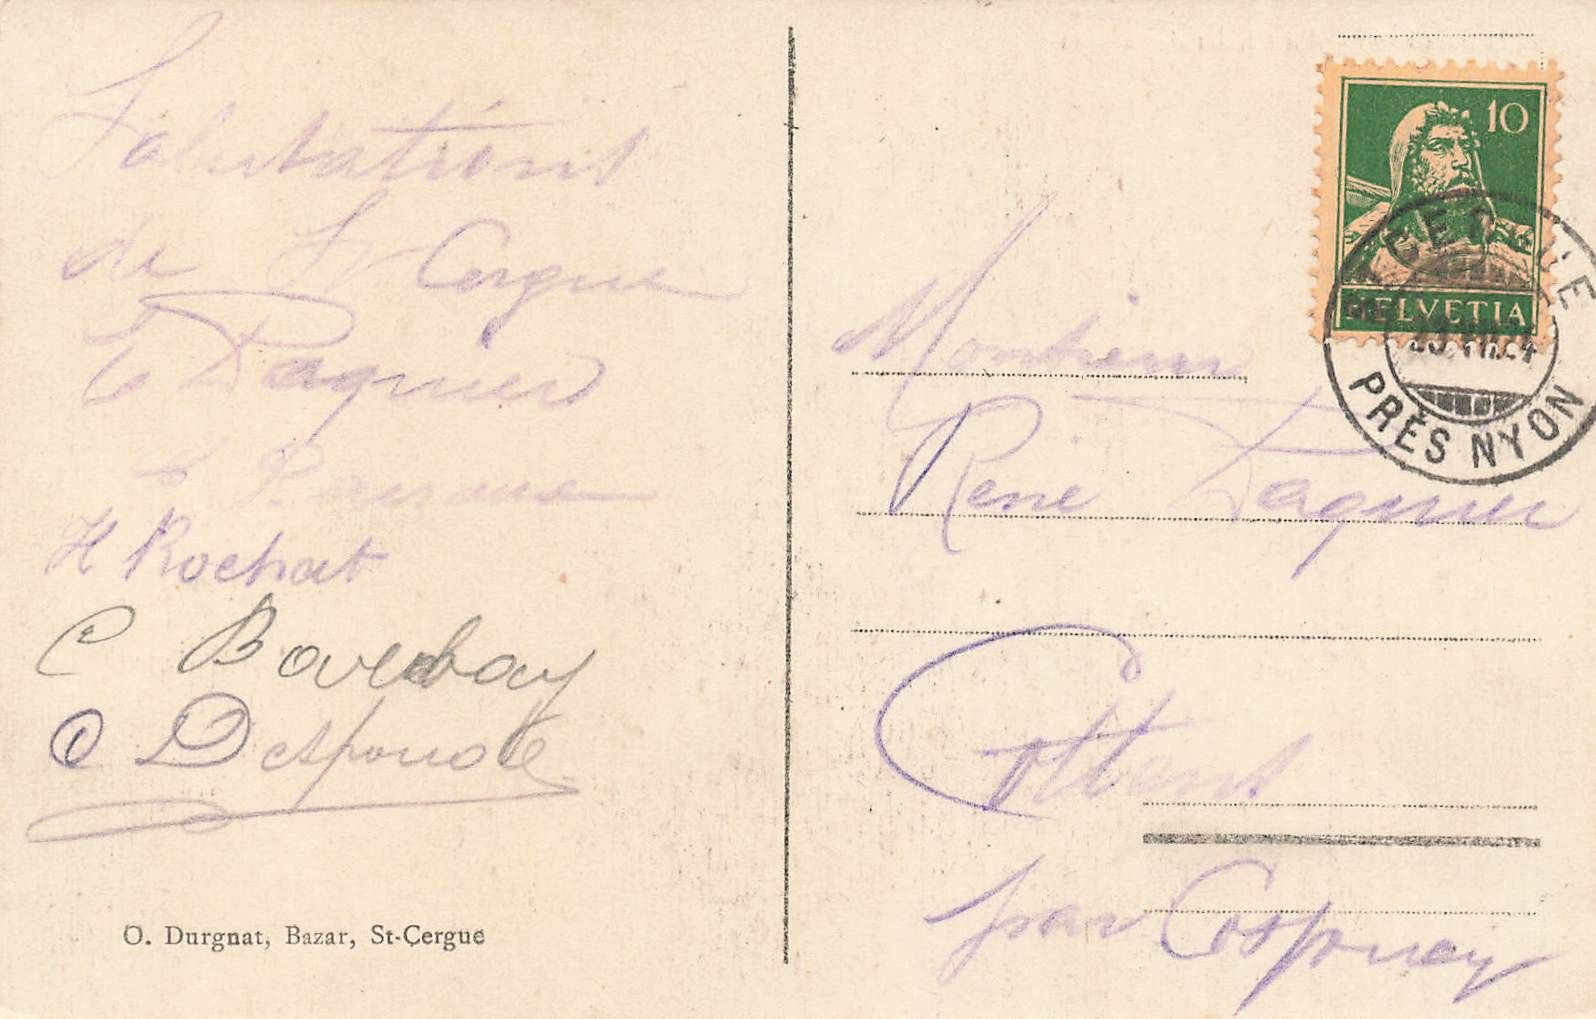 Salutations
de St Cergue
E Pasquier
H Rochat
C Boverbay
O Desponds
O. Durgnat, Bazar, St-Çergue
10
HELVETIA
PRÈS NYON
Monsieur
René Pasquier
Cottens
par Cossonay